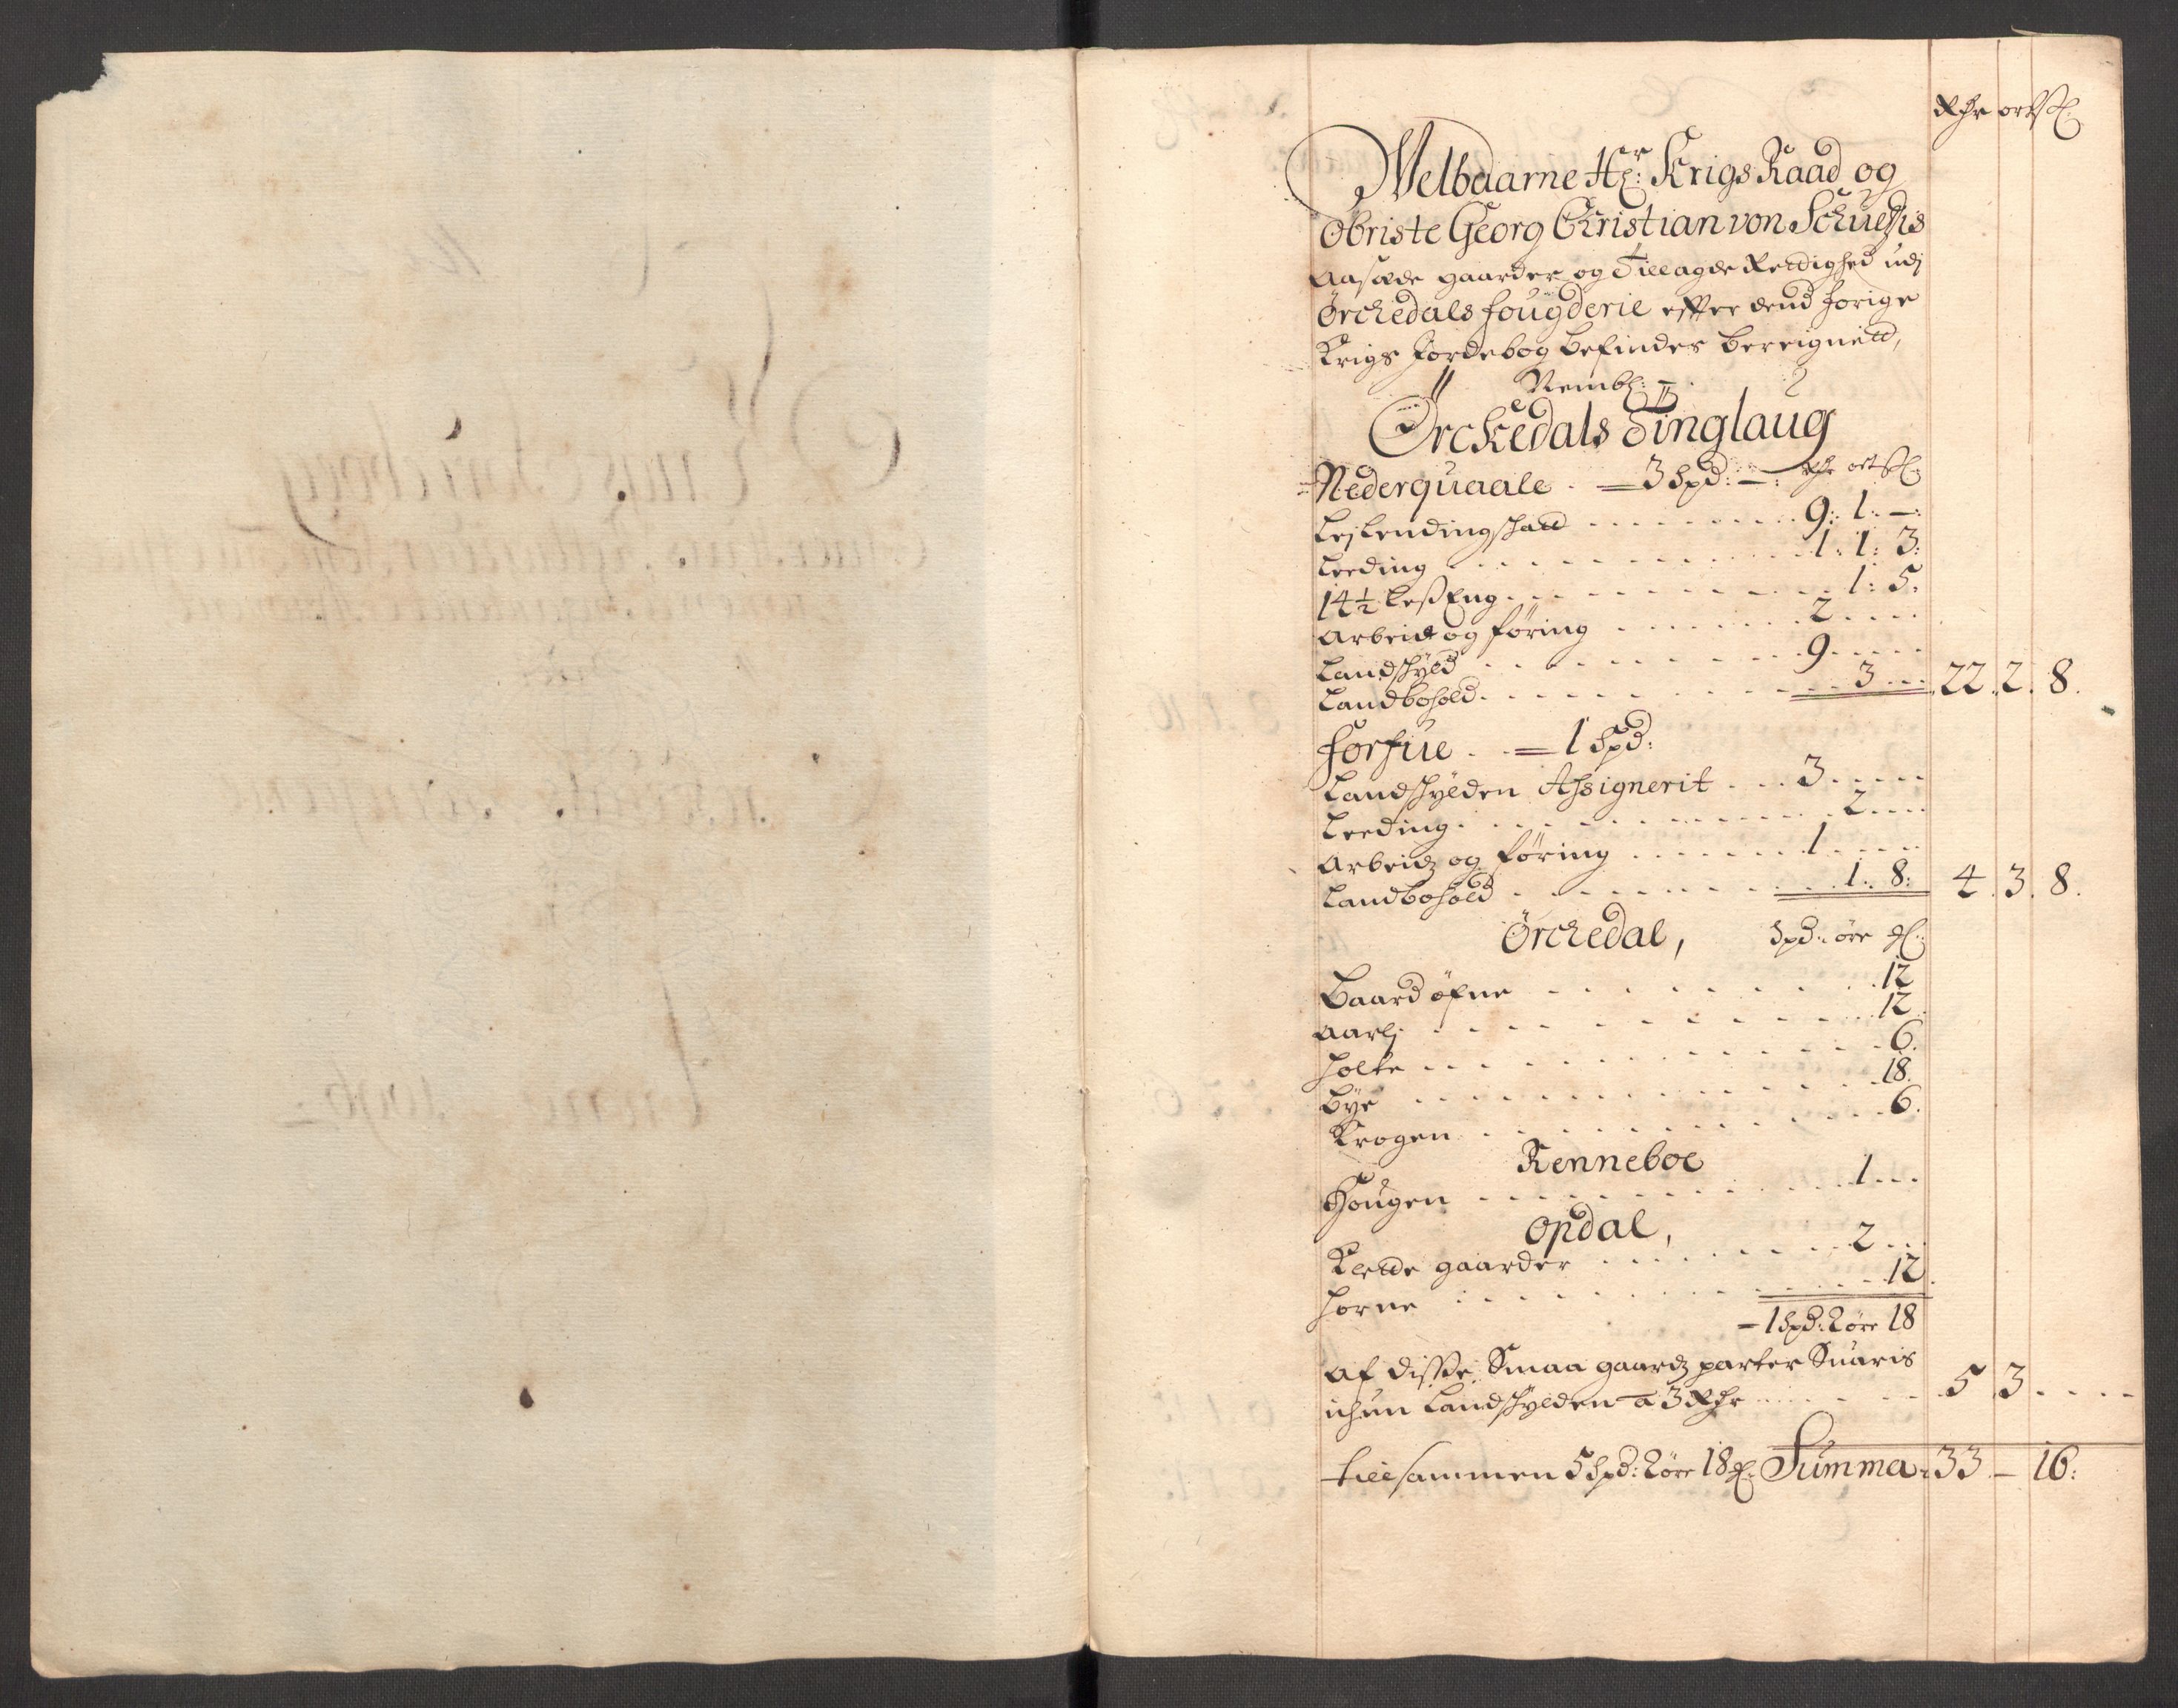 Rdr ort ß
Welbaarne Hr: Krigs Raad og
Obriste Georg Christian von Schultz
Aasæde gaarder og Tillagde Rettighed udj
Örchedals fougderie efter dend forige
Krigs Jordebog befindes bereignett,
Nembl:
Örckedals Tinglaug
Nederquaale . — 3 spd: —: Rdr ort ß
Leylendingsskatt . . . 9: 1: —:
Leeding . . . 1: 1: 3:
14½ Less Eng . . . 1: 5:
Arbeid og föring . . . 2 . . .
Landskyld . . . 9 . . .
Landbohold . . . 3 . . . 22. 2. 8.
forfue . . = 1 spd:
Landskylden Assignerit . . . 3 . . .
Leeding . . . 2 . . .
Arbeidz og föring . . . 1 . . .
Landbohold . . . 1: 8: 4. 3. 8.
Örchedal, Spd: öre
Baardöfne . . . 12
Aarlj . . . 12
Holte . . . 6.
Bye . . . 18.
Krogen . . . 6.
Renneboe
Hougen . . . 1 . . .
Opdal,
Klette gaarder . . . 2 . . .
Horne . . . 12.
— 1 spd: 2 öre 18
Af disse Smaa gaardz parter Suaris
ichun Landskylden a 3 Rdr . . . 5 3 . . .
tillsammen 5 spd: 2 öre 18 Summa 33 — 16: